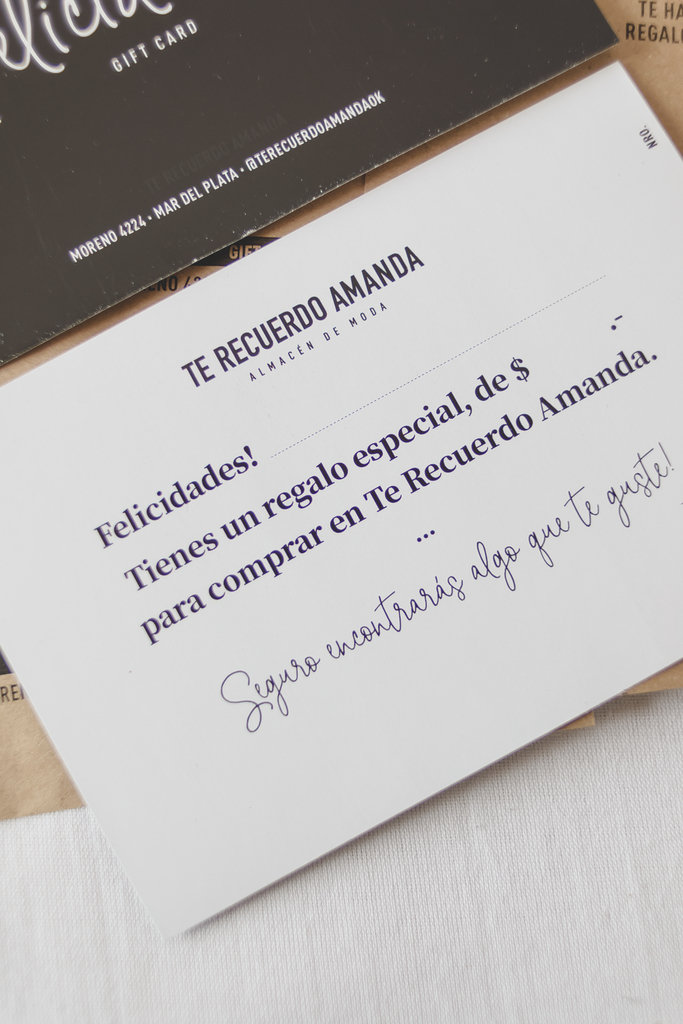 GIFT CARD
TE RECUERDO AMANDA
MORENO 4224 • MAR DEL PLATA • @TERECUERDOAMANDAOK
TE HA
REGAL
NRO.
GIFT
TE RECUERDO AMANDA
ALMACÉN DE MODA
Felicidades!
Tienes un regalo especial, de $ .-
para comprar en Te Recuerdo Amanda.
...
Seguro encontrarás algo que te guste!